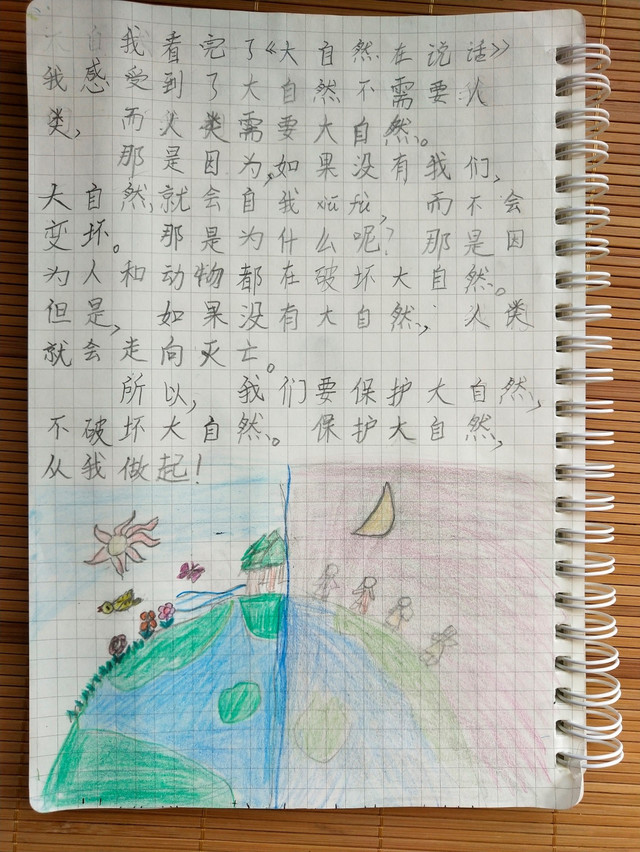 我看完了《大自然在说话》
我感受到了大自然不需要人
类，而人类需要大自然。
那是因为，如果没有我们，
大自然，就会自我恢复，而不会
变坏。那是为什么呢？那是因
为人和动物都在破坏大自然。
但是，如果没有大自然，人类
就会走向灭亡。
所以，我们要保护大自然，
不破坏大自然。保护大自然，
从我做起！